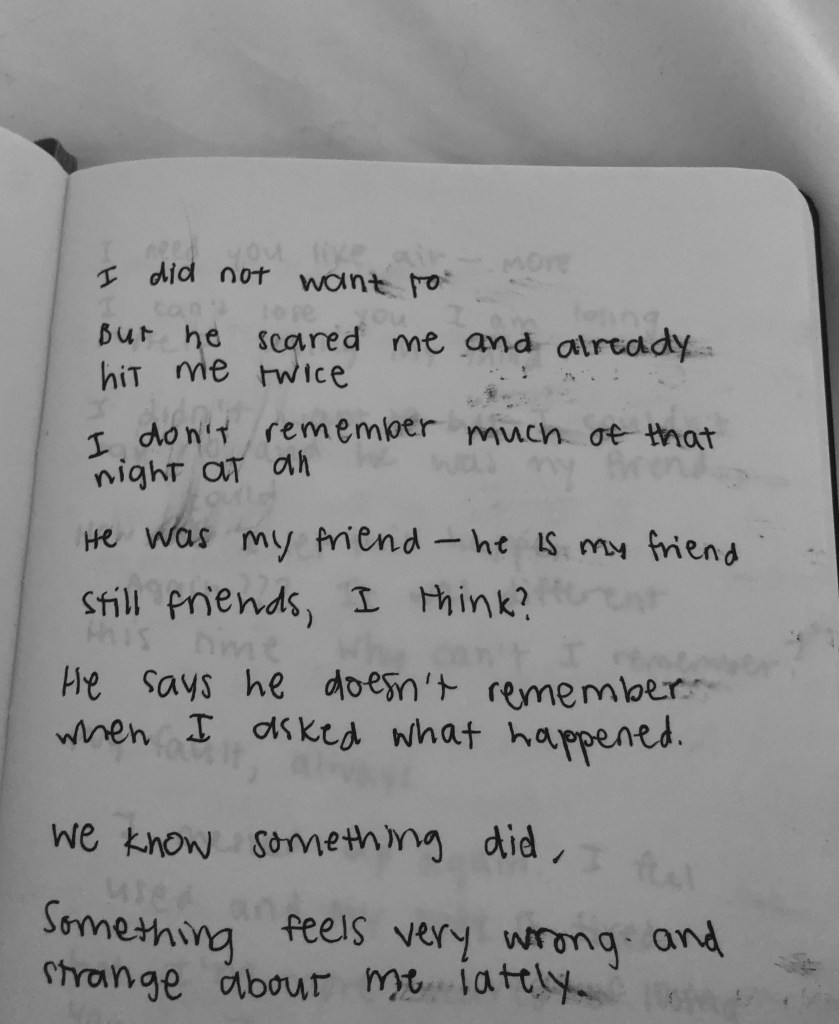 I did not want to
But he scared me and already
hit me twice
I don't remember much of that
night at all
He was my friend — he is my friend
still friends, I think?
He says he doesn't remember
when I asked what happened.
We know something did,
Something feels very wrong and
strange about me lately.